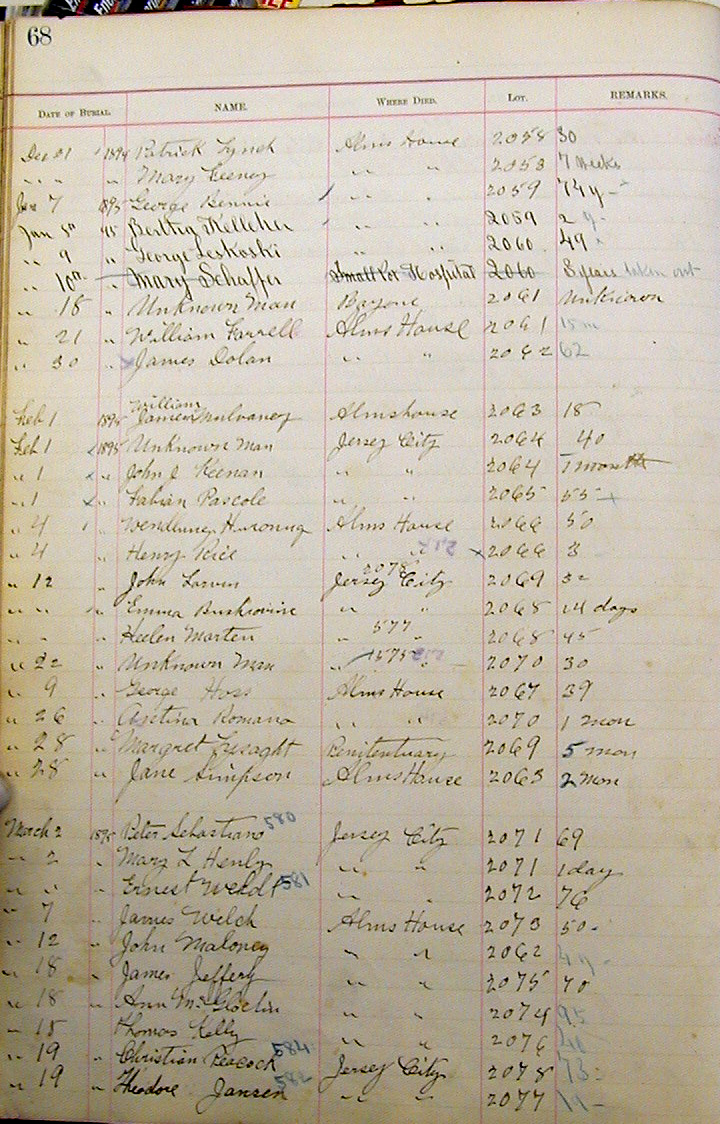 68
DATE OF BURIAL. NAME. WHERE DIED. LOT. REMARKS.
Dec 31 1894 Patrick Lynch Alms House 2058 30
" " " Mary Keeney " " 2058 7 weeks
Jan 7 1895 George Bennie " " 2059 74 y
Jan 8th 95 Berthy Kelleher " " 2059 2 y
" 9 " George Leskoski " " 2060 49
" 10th " Mary Schaffer Small Pox Hospital 2060 8 years taken out
" 18 " Unknown Man Bayone 2061 Unknown
" 21 " William Farrell Alms House 2061 15 m
" 30 " James Dolan " " 2062 62
William
Feb 1 1895 James Mulvaney Almshouse 2063 18
Feb 1 1895 Unknown Man Jersey City 2064 40
" 1 " John J Keenan " " 2064 7 month
" 1 " Fabian Pascole " " 2065 55
" 4 " Alms House 2066 50
" 4 " Henry Rice " " 2066 3
2078
" 12 " John Larvin Jersey City 2069 32
" " " Emma " " 2068 14 days
" " " Heelen Marten " 577 " 2068 45
" 22 " Unknown Man " 1575 " 2070 30
" 9 " George Hoss Alms House 2067 39
" 26 " Romano " " 2070 1 mon
" 28 " Margret Lysaght Penitentuary 2069 5 mon
" 28 " Jane Simpson Alms House 2063 2 Mon
March 2 1895 Peter Sebastiano 580 Jersey City 2071 69
" 2 " Mary L Henly " " 2071 1 day
" " " Ernest Weldt 581 " " 2072 76
" 7 " James Welch Alms House 2073 50
" 12 " John Maloney " " 2062
" 18 " James Jeffery " " 2075 70
" 18 " Ann McGloclin " " 2074 95
" 15 " Thomas Kelly " " 2076 40
" 19 " Christian Peacock 584 Jersey City 2078 73
" 19 " Theodore Jansen 582 " " 2077